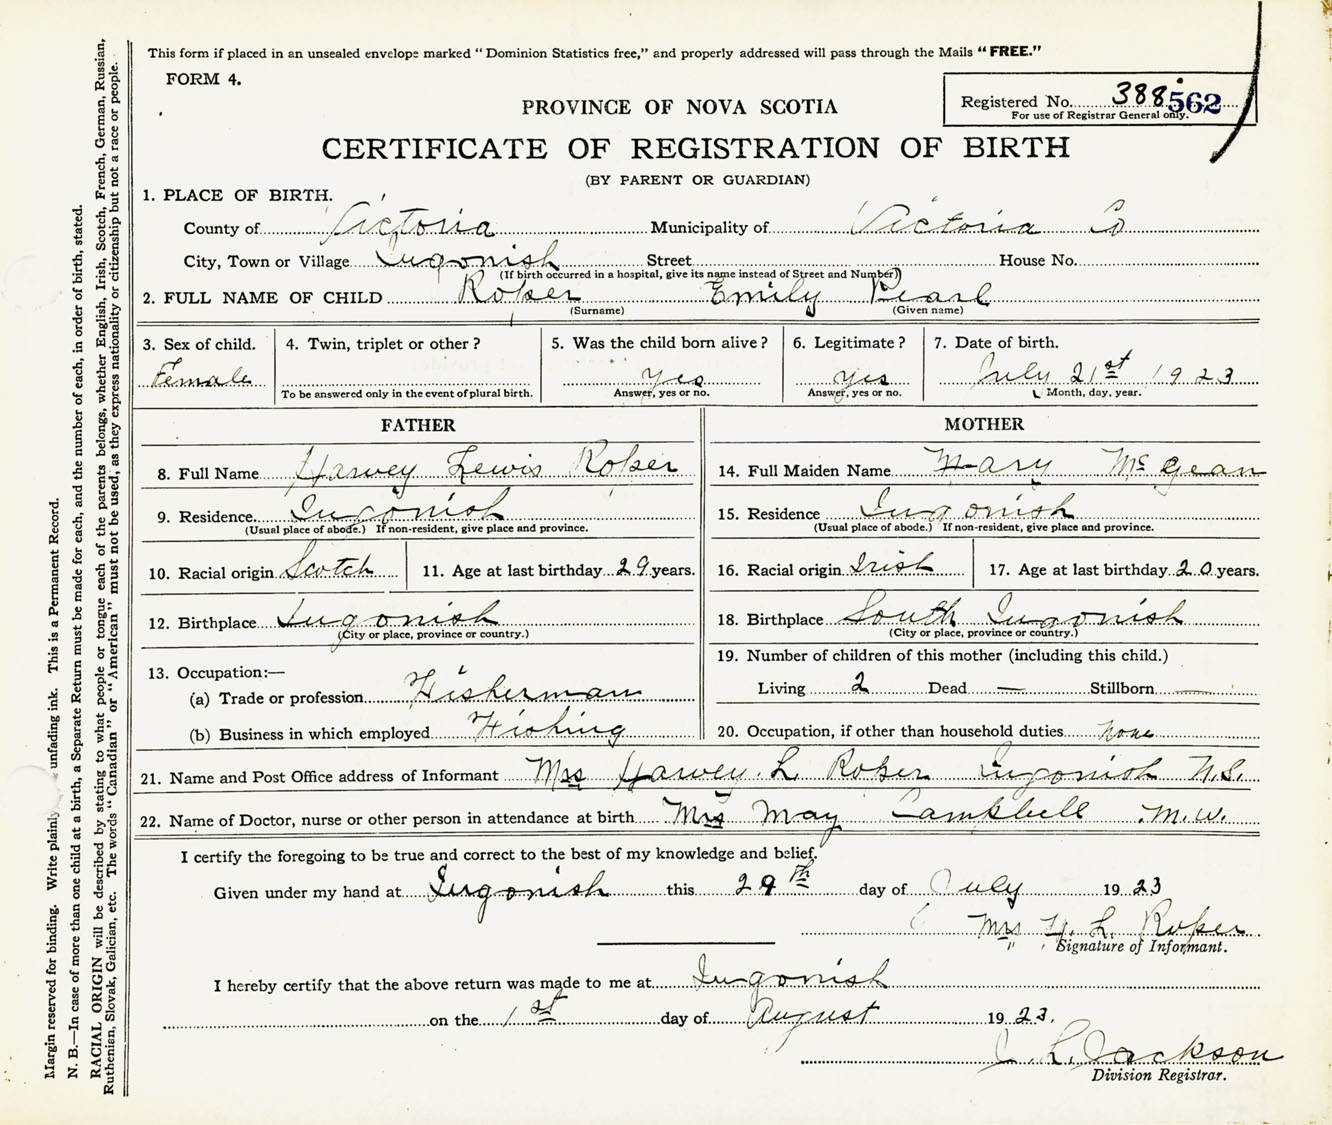 This form if placed in an unsealed envelope marked "Dominion Statistics free," and properly addressed will pass through the Mails "FREE."
FORM 4.
Registered No. 388 562
For use of Registrar General only.
PROVINCE OF NOVA SCOTIA
CERTIFICATE OF REGISTRATION OF BIRTH
(BY PARENT OR GUARDIAN)
1. PLACE OF BIRTH.
County of Victoria Municipality of Victoria Co
City, Town or Village Ingonish Street House No.
(If birth occurred in a hospital, give its name instead of Street and Number)
2. FULL NAME OF CHILD Roper Emily Pearl
(Surname) (Given name)
3. Sex of child. 4. Twin, triplet or other? 5. Was the child born alive? 6. Legitimate? 7. Date of birth.
Female yes yes July 21st 1923
To be answered only in the event of plural birth. Answer, yes or no. Answer, yes or no. Month, day, year.
FATHER
8. Full Name Harvey Lewis Roper
9. Residence Ingonish
(Usual place of abode.) If non-resident, give place and province.
10. Racial origin Scotch 11. Age at last birthday 29 years.
12. Birthplace Ingonish
(City or place, province or country.)
13. Occupation:—
(a) Trade or profession Fisherman
(b) Business in which employed Fishing
MOTHER
14. Full Maiden Name Mary McGean
15. Residence Ingonish
(Usual place of abode.) If non-resident, give place and province.
16. Racial origin Irish 17. Age at last birthday 20 years.
18. Birthplace South Ingonish
(City or place, province or country.)
19. Number of children of this mother (including this child.)
Living 2 Dead — Stillborn —
20. Occupation, if other than household duties none
21. Name and Post Office address of Informant Mrs Harvey L Roper Ingonish N.S.
22. Name of Doctor, nurse or other person in attendance at birth Mrs May Campbell M.W.
I certify the foregoing to be true and correct to the best of my knowledge and belief.
Given under my hand at Ingonish this 29th day of July 1923
Mrs H. L. Roper
Signature of Informant.
I hereby certify that the above return was made to me at Ingonish
on the 1st day of August 1923.
L. Jackson
Division Registrar.
Margin reserved for binding. Write plainly unfading ink. This is a Permanent Record.
N. B.—In case of more than one child at a birth, a Separate Return must be made for each, and the number of each, in order of birth, stated.
RACIAL ORIGIN will be described by stating to what people or tongue each of the parents belongs, whether English, Irish, Scotch, French, German, Russian,
Ruthenian, Slovak, Galician, etc. The words "Canadian" or "American" must not be used, as they express nationality or citizenship but not a race or people.